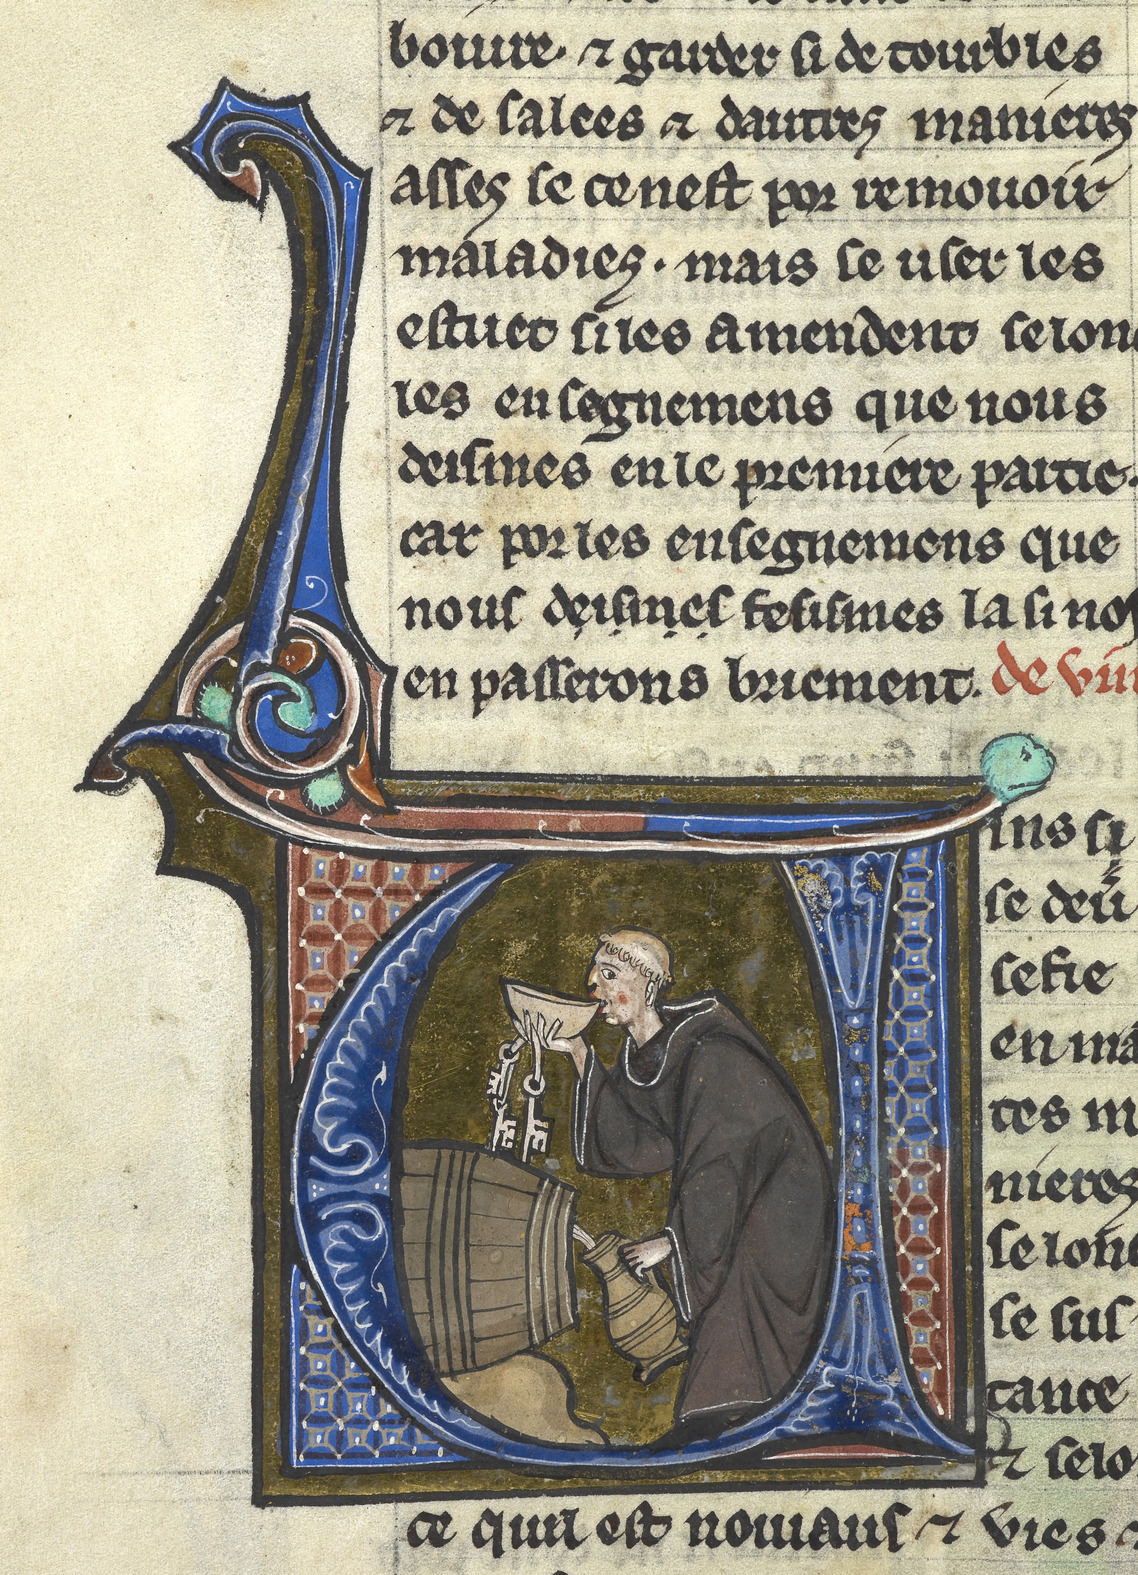 boiure· ⁊ garder si de tourbles
⁊ de salees ⁊ dautres manieres
asses se ce nest por remouoir
maladies · mais se user les
estuet si les amendent selonc
les ensegnemens que nous
deismes en le premiere partie·
car por les ensegnemens que
nous deismes fesismes la si nos
en passerons briement. de vin
ins si
se deu
sefie
en ma
tes m
nieres
selonc
se sus
tance
⁊ selo
ce quil est nouiaus ⁊ vies